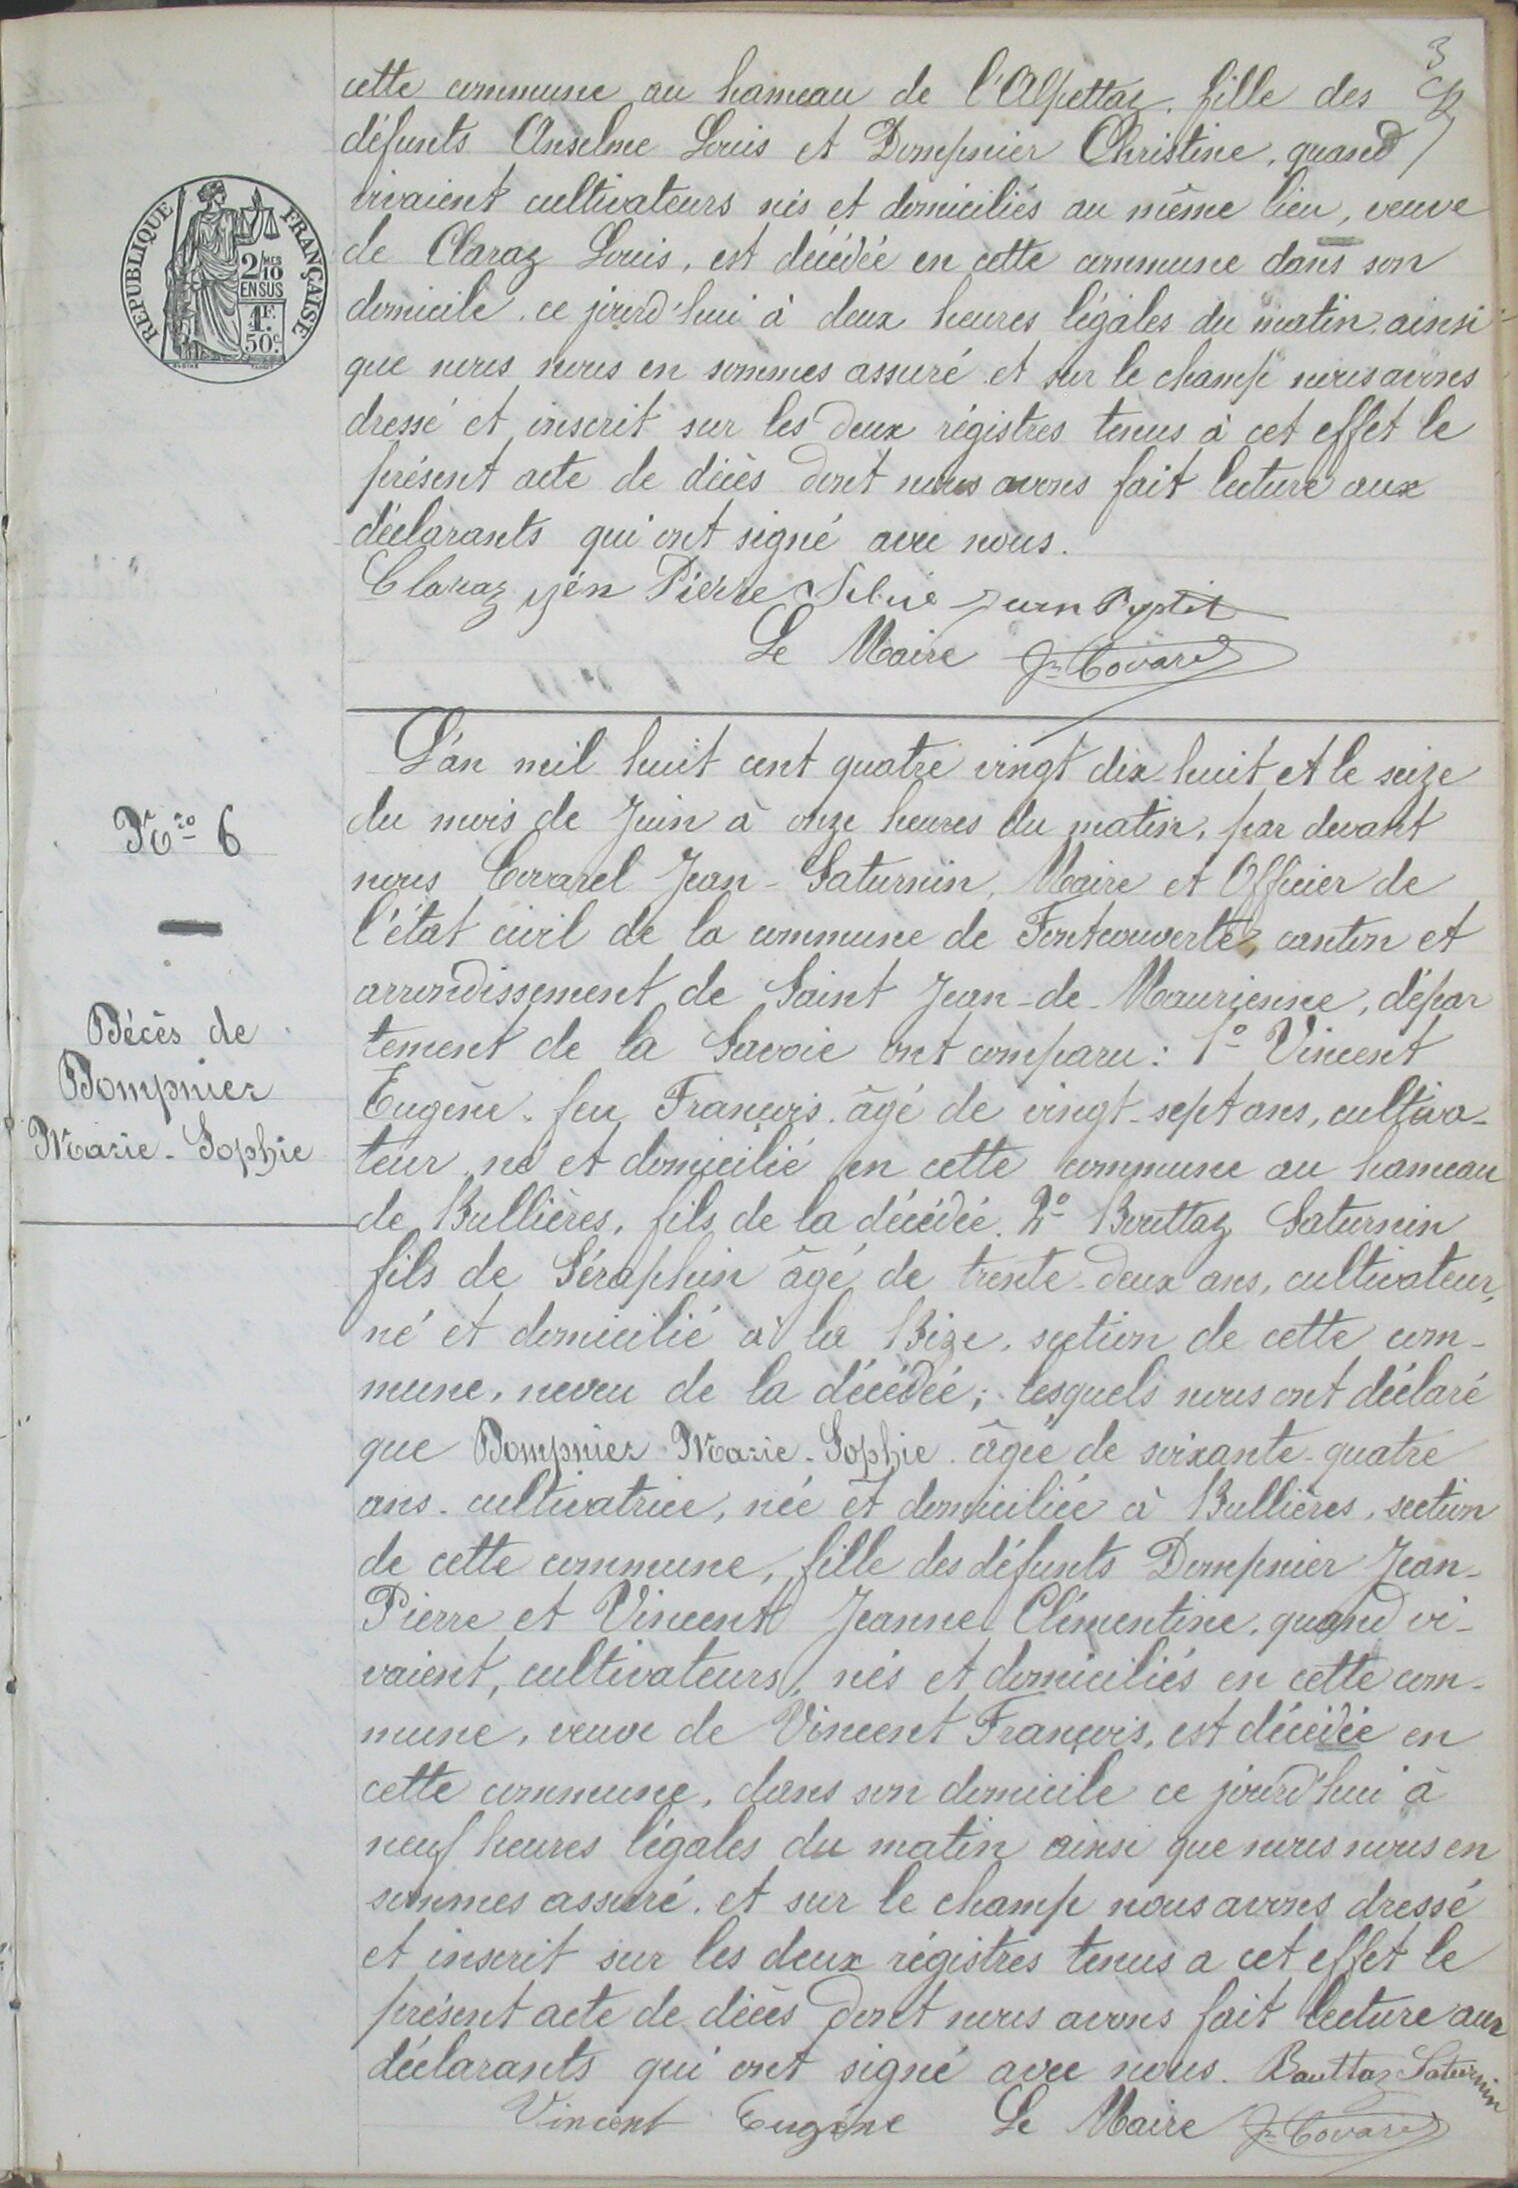 3
cette commune au hameau de l'Alpettaz, fille des
défunts Anselme Louis et Dompnier Christine, quand
vivaient cultivateurs nés et domiciliés au même lieu, veuve
de Claraz Louis, est décédée en cette commune dans son
domicile, ce jourd'hui à deux heures légales du matin, ainsi
que nous nous en sommes assuré et sur le champ nous avons
dressé et inscrit sur les deux régistres tenus à cet effet le
présent acte de décès dont nous avons fait lecture aux
déclarants qui ont signé avec nous.
Claraz jén Pierre
Le Maire Jn Covarel
REPUBLIQUE FRANÇAISE
2/10 MES
EN SUS
1F.
50c.
Nro 6
Décès de
Dompnier
Marie-Sophie
L'an mil huit cent quatre vingt dix-huit et le seize
du mois de Juin à onze heures du matin, par devant
nous Covarel Jean-Saturnin, Maire et Officier de
l'état civil de la commune de Fontcouverte, canton et
arrondissement de Saint Jean-de-Maurienne, dépar
tement de la Savoie ont comparu: 1° Vincent
Eugène, feu François, âgé de vingt-sept ans, cultiva-
teur né et domicilié en cette commune au hameau
de Bullières, fils de la décédée. 2° Bouttaz Saturnin
fils de Séraphin âgé de trente-deux ans, cultivateur,
né et domicilié à la Bize, section de cette com-
mune, neveu de la décédée; lesquels nous ont déclaré
que Dompnier Marie-Sophie, âgée de soixante-quatre
ans, cultivatrice, née et domiciliée à Bullières, section
de cette commune, fille des défunts Dompnier Jean-
Pierre et Vincent Jeanne Clémentine, quand vi-
vaient, cultivateurs, nés et domiciliés en cette com-
mune, veuve de Vincent François, est décédée en
cette commune, dans son domicile ce jourd'hui à
neuf heures légales du matin ainsi que nous nous en
sommes assuré, et sur le champ nous avons dressé
et inscrit sur les deux régistres tenus a cet effet le
présent acte de décès dont nous avons fait lecture aux
déclarants qui ont signé avec nous. Bouttaz Saturnin
Vincent Eugéne Le Maire Jn Covarel